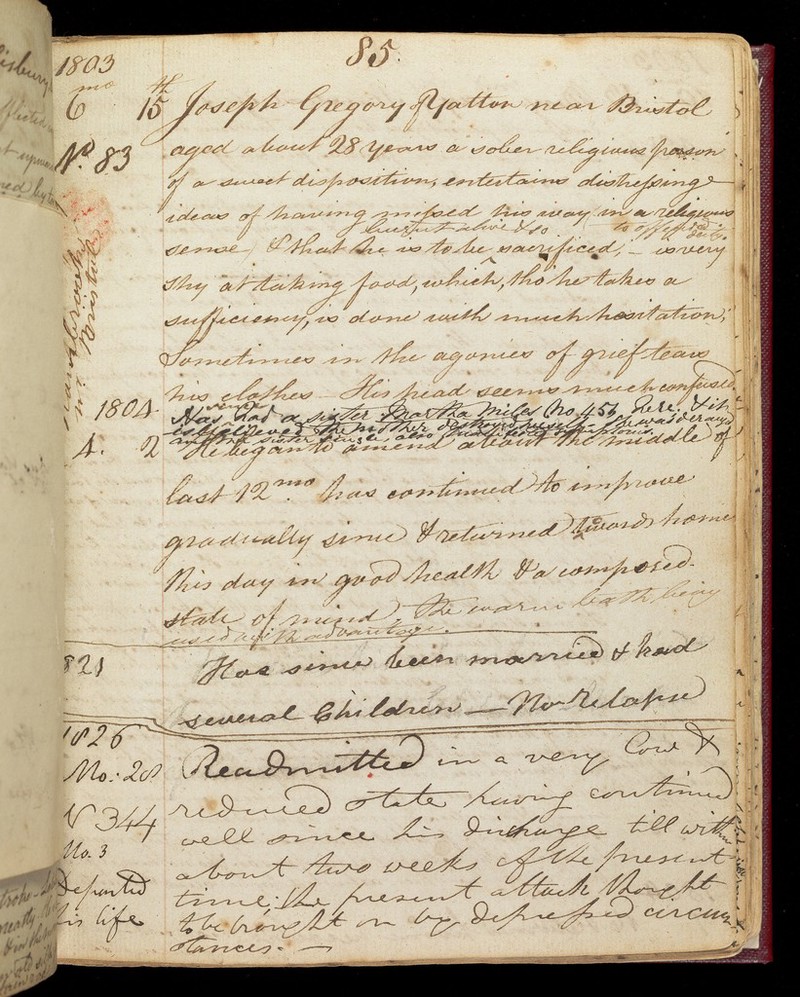 85.
1803
mo
6 15 Joseph Gregory of Yatton near Bristol
No. 83 aged about 28 years a sober religious person
of a sweet disposition, entertains distressing
ideas of having missed his way (in a religious
burnt alive & so to
sense) & that he is to be sacrificed, — is very
shy at taking food, which, tho' he takes a
sufficiency, is done with much hesitation;
Sometimes in the agonies of grief tears
his clothes — His head seems much confused
near Bristol
1804 Has since had a sister Martha Miles No. 456 here. & it
is believed the mother destroyed herself
another sister since, also
4. 2 He began to amend about the middle of
last 12 mo has continued to improve
gradually since & returned towards home
this day in good health & a composed
state of mind, The warm bath being
used with advantage.
821 Has since been married & had
several Children — No Relapse
1826
Mo: 28 Readmitted in a very Low &
reduced state having continued
N 344 well since his discharge till within
Mo. 3 about two weeks of the present
Departed time; the present attack thought
his life to be brought on by depressed circum
stances. —